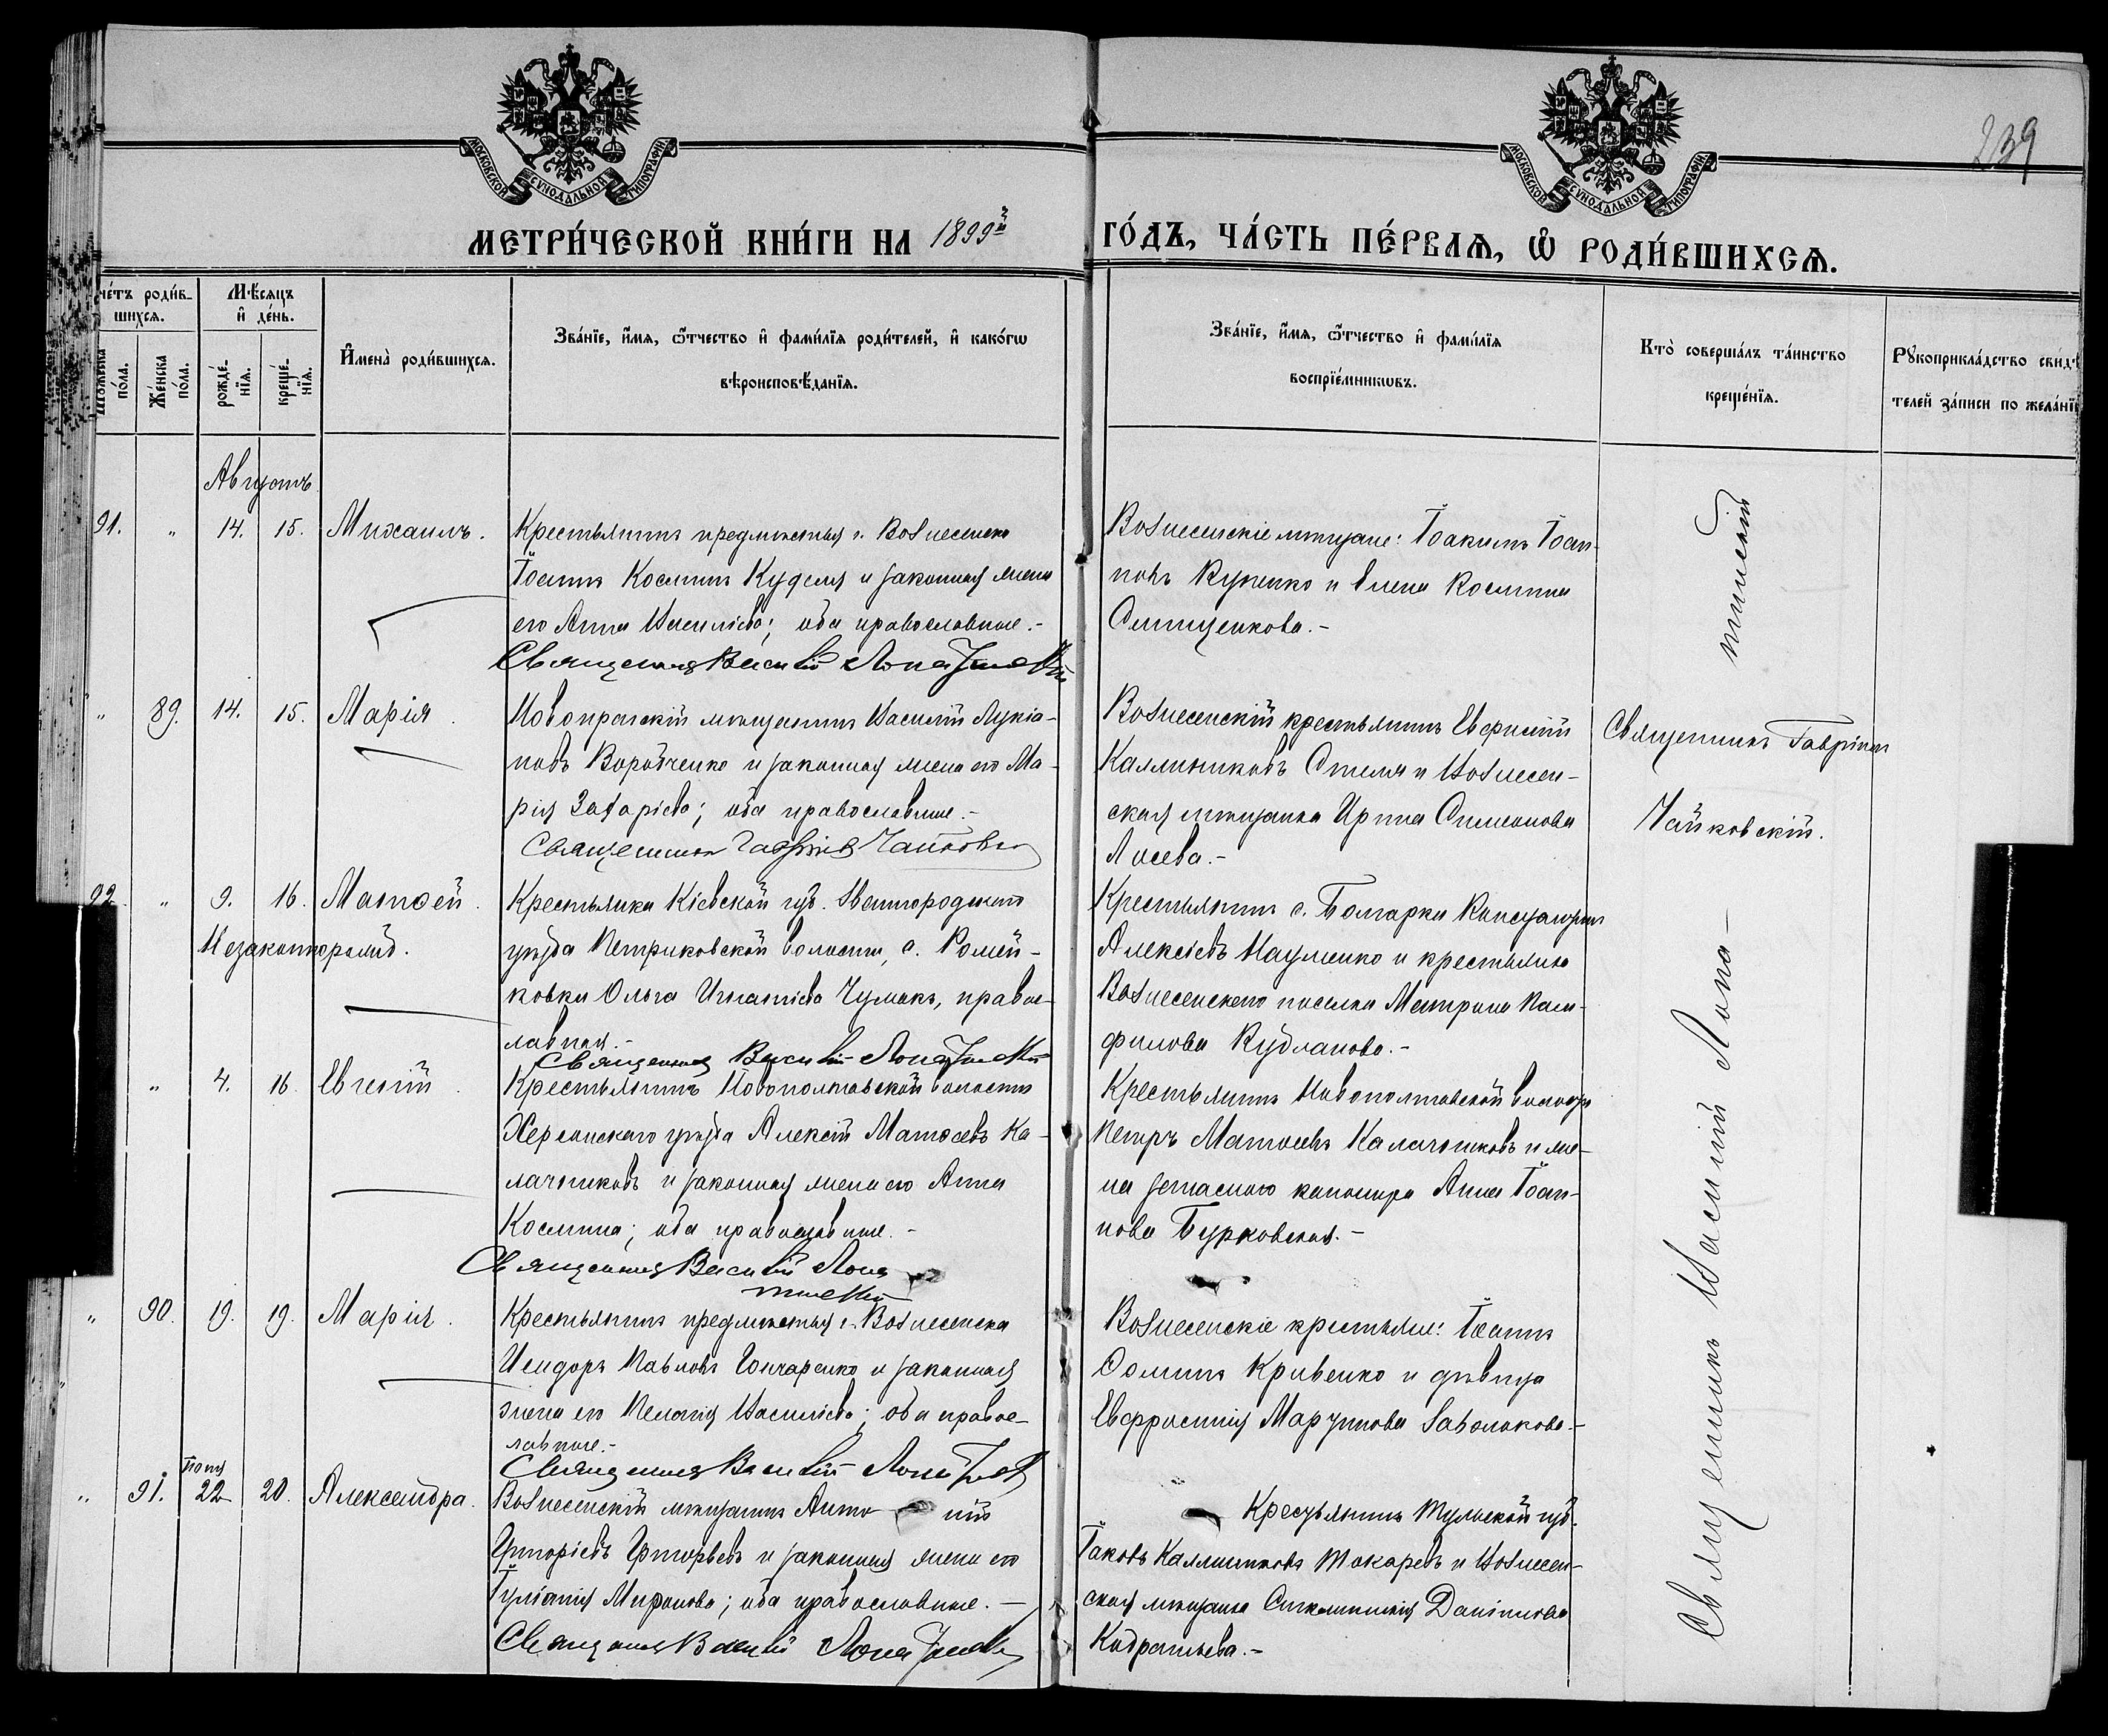 МОСКОВСКОЙ СѴНОДАЛЬНОЙ ТИПОГРАФІИ
МОСКОВСКОЙ СѴНОДАЛЬНОЙ ТИПОГРАФІИ
239
МЕТРИ́ЧЕСКОЙ КНИ́ГИ НА 1899й
ГО́ДЪ, ЧА́СТЬ ПЕ́РВАѦ, Ѡ҆ РОДИ́ВШИХСѦ.
че́тъ роди́в-
шихсѧ.
Мѣ́сѧцъ
и҆ де́нь.
И҆мена̀ роди́вшихсѧ.
Зва́нїе, и҆́мѧ, ѻ҆́тчество и҆ фами́лїѧ роди́телей, и҆ како́гѡ
вѣроисповѣ́данїѧ.
Зва́нїе, и҆́мѧ, ѻ҆́тчество и҆ фами́лїѧ
воспрїе́мникѡвъ.
Кто̀ соверша́лъ та́инство
креще́нїѧ.
Рꙋкоприкла́дство свидѣ
телей за́писи по жела́нїю
Мꙋжеска
по́ла.
Же́нска
по́ла.
рожде́-
нїѧ.
креще́-
нїѧ.
Августъ
91. " 14. 15. Михаилъ.
Крестьянинъ предмѣстья г. Вознесенска
Іоаннъ Косминъ Куделя и законная жена
его Анна Василіева; оба православные.-
Священник Василій Лопатинскій
Вознесенскіе мѣщане: Іоакимъ Іоан-
новъ Куценко и Елена Космина
Синищенкова.-
" 89. 14. 15. Марія.
Новопражскій мѣщанинъ Василій Лукіа-
новъ Воробченко и законная жена его Ма-
рія Захаріева; оба православные.-
Священник Гавріил Чайковскій
Вознесенскій крестьянинъ Евфимій
Каллиниковъ и Вознесен-
ская мѣщанка Ирина Симеонова
Лисева.-
Священникъ Гавріилъ
Чайковскій.
92. " 9. 16. Матѳей.
Незаконнорожд.
Крестьянка Кіевской губ. Звенигородскаго
уѣзда Петриковской волости, с. Ромей-
ковки Ольга Игнатіева Чумакъ, правос-
лавная.-
Священник Василій Лопатинскій
Крестьянинъ с. Болгарки
Алексіевъ Науменко и крестьянка
Вознесенскаго поселка Матрона Пам-
филова Кубланова.-
" 4. 16. Евгеній.
Крестьянинъ Новополтавской волости
Херсонскаго уѣзда Алексій Матѳеевъ Ка-
лачниковъ и законная жена его Анна
Космина; оба православные.-
Священник Василій Лопа
тинскій
Крестьянинъ Новополтавской волости
Петръ Матѳеевъ Калачниковъ и же-
на запаснаго канонира Анна Іоан-
нова Бурковская.-
" 90. 19. 19. Марія.
Крестьянинъ предмѣстья г. Вознесенска
Исидоръ Павловъ Гончаренко и законная
жена его Пелагія Василіева; оба правос-
лавные.-
Священник Василій Лопатинскій
Вознесенскіе крестьяне: Іоаннъ
Ѳоминъ Кривенко и дѣвица
Евфросинія Мартинова Заволокова.-
" 91. Іюня 22 20. Александра.
Вознесенскій мѣщанинъ Анто ній
Григоріевъ Григорьевъ и законная жена его
Іуліанія Миронова; оба православные.-
Священник Василій Лопатинскій
Крестьянинъ Тульской губ.
Іаковъ Каллиниковъ Токаревъ и Вознесен-
ская мѣщанка Даніилова
Кадратьева.-
Священникъ Василій Лопа-
тинскій